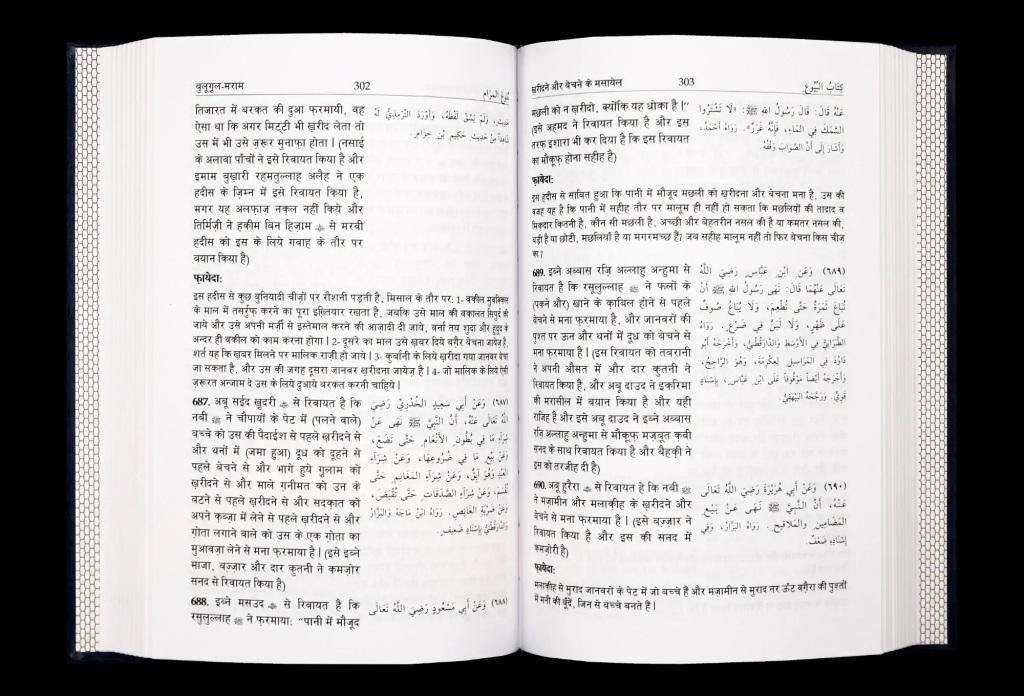 बुलूगुल-मराम 302 بُلُوغُ المَرَام
तिजारत में बरकत की दुआ फ़रमायी, वह
ऐसा था कि अगर मिट्टी भी ख़रीद लेता तो
उस में भी उसे ज़रूर मुनाफ़ा होता। (नसाई
के अलावा पाँचों ने इसे रिवायत किया है और
इमाम बुख़ारी रहमतुल्लाह अलैह ने एक
हदीस के ज़िम्न में इसे रिवायत किया है,
मगर यह अलफ़ाज़ नक़ल नहीं किये और
तिर्मिज़ी ने हकीम बिन हिज़ाम ﷺ से मरवी
हदीस को इस के लिये गवाह के तौर पर
बयान किया है)
حَدِيثٍ، وَلَمْ يَسُقْ لَفْظَهُ، وَأَوْرَدَ التِّرْمِذِيُّ لَهُ
شَاهِداً مِنْ حَدِيثِ حَكِيمِ بْنِ حِزَامٍ.
फ़ायेदा:
इस हदीस से कुछ बुनियादी चीज़ों पर रौशनी पड़ती है, मिसाल के तौर पर: 1- वकील मुवक्किल
के माल में तसर्रुफ़ करने का पूरा इख़्तियार रखता है, जबकि उसे माल की वकालत सिपुर्द की
जाये और उसे अपनी मर्ज़ी से इस्तेमाल करने की आज़ादी दी जाये, वर्ना तय शुदा और हुदूद के
अन्दर ही वकील को काम करना होगा। 2- दूसरे का माल उसे ख़बर दिये बग़ैर बेचना जायेज़ है,
शर्त यह कि ख़बर मिलने पर मालिक राज़ी हो जाये। 3- क़ुर्बानी के लिये ख़रीदा गया जानवर बेचा
जा सकता है, और उस की जगह दूसरा जानवर ख़रीदना जायेज़ है। 4- जो मालिक के लिये ऐसी
ज़रूरत अन्जाम दे उस के लिये दुआये बरकत करनी चाहिये।
687. अबू सईद ख़ुदरी से रिवायत है कि
नबी ﷺ ने चौपायों के पेट में (पलने वाले)
बच्चे को उस की पैदाईश से पहले ख़रीदने से
और थनों में (जमा हुआ) दूध को दूहने से
पहले बेचने से और भागे हुये गुलाम को
ख़रीदने से और माले ग़नीमत को उन के
बटने से पहले ख़रीदने से और सदक़ात को
अपने क़ब्ज़ा में लेने से पहले ख़रीदने से और
ग़ोता लगाने वाले को उस के एक ग़ोता का
मुआवज़ा लेने से मना फ़रमाया है। (इसे इब्ने
माजा, बज़्ज़ार और दार क़ुतनी ने कमज़ोर
सनद से रिवायत किया है)
(٦٨٧) وَعَنْ أَبِي سَعِيدٍ الخُدْرِيِّ رَضِيَ
اللَّهُ تَعَالَى عَنْهُ، أَنَّ النَّبِيَّ ﷺ نَهَى عَنْ
شِرَاءِ مَا فِي بُطُونِ الأَنْعَامِ حَتَّى تَضَعَ،
وَعَنْ بَيْعِ مَا فِي ضُرُوعِهَا، وَعَنْ شِرَاءِ
العَبْدِ وَهُوَ آبِقٌ، وَعَنْ شِرَاءِ المَغَانِمِ حَتَّى
تُقْسَمَ، وَعَنْ شِرَاءِ الصَّدَقَاتِ حَتَّى تُقْبَضَ،
وَعَنْ ضَرْبَةِ الغَائِصِ. رَوَاهُ ابْنُ مَاجَهْ وَالبَزَّارُ
وَالدَّارَقُطْنِيُّ بِإِسْنَادٍ ضَعِيفٍ.
688. इब्ने मसउद से रिवायत है कि
रसूलुल्लाह ﷺ ने फ़रमाया: "पानी में मौजूद
(٦٨٨) وَعَنْ أَبِي مَسْعُودٍ رَضِيَ اللَّهُ تَعَالَى
ख़रीदने और बेचने के मसायेल 303 كِتَابُ البُيُوعِ
मछली को न ख़रीदो, क्योंकि यह धोका है।"
(इसे अहमद ने रिवायत किया है और इस
तरफ़ इशारा भी कर दिया है कि इस रिवायत
का मौक़ूफ़ होना सहीह है)
عَنْهُ قَالَ: قَالَ رَسُولُ اللهِ ﷺ: «لَا تَشْتَرُوا
السَّمَكَ فِي المَاءِ، فَإِنَّهُ غَرَرٌ». رَوَاهُ أَحْمَدُ،
وَأَشَارَ إِلَى أَنَّ الصَّوَابَ وَقْفُهُ.
फ़ायेदा:
इस हदीस से साबित हुआ कि पानी में मौजूद मछली को ख़रीदना और बेचना मना है, उस की
वजह यह है कि पानी में सहीह तौर पर मालूम ही नहीं हो सकता कि मछलियों की तादाद व
मिक़दार कितनी है, कौन सी मछली है, अच्छी और बेहतरीन नसल की है या कमतर नसल की,
बड़ी है या छोटी, मछलियाँ है या मगरमच्छ है? जब सहीह मालूम नहीं तो फिर बेचना किस चीज़
का?
689. इब्ने अब्बास रज़ि अल्लाहु अन्हुमा से
रिवायत है कि रसूलुल्लाह ﷺ ने फलों के
(पकने और) खाने के क़ाबिल होने से पहले
बेचने से मना फ़रमाया है, और जानवरों की
पुश्त पर ऊन और थनों में दूध को बेचने से
मना फ़रमाया है। (इस रिवायत को तबरानी
ने अपनी औसत में और दार क़ुतनी ने
रिवायत किया है, और अबू दाउद ने इकरिमा
की मरासील में बयान किया है और यही
राजिह है और इसे अबू दाउद ने इब्ने अब्बास
रज़ि अल्लाहु अन्हुमा से मौक़ूफ़ मज़बूत क़वी
सनद के साथ रिवायत किया है और बैहक़ी ने
इस को तरजीह दी है)
(٦٨٩) وَعَنِ ابْنِ عَبَّاسٍ رَضِيَ اللَّهُ
تَعَالَى عَنْهُمَا قَالَ: نَهَى رَسُولُ اللهِ ﷺ أَنْ
تُبَاعَ ثَمَرَةٌ حَتَّى تُطْعِمَ، وَلَا يُبَاعُ صُوفٌ
عَلَى ظَهْرٍ، وَلَا لَبَنٌ فِي ضَرْعٍ. رَوَاهُ
الطَّبَرَانِيُّ فِي الأَوْسَطِ وَالدَّارَقُطْنِيُّ، وَأَخْرَجَهُ أَبُو
دَاوُدَ فِي المَرَاسِيلِ لِعِكْرِمَةَ، وَهُوَ الرَّاجِحُ،
وَأَخْرَجَهُ أَيْضاً مَوْقُوفاً عَلَى ابْنِ عَبَّاسٍ، بِإِسْنَادٍ
قَوِيٍّ. وَرَجَّحَهُ البَيْهَقِيُّ.
690. अबू हुरैरा से रिवायत है कि नबी ﷺ
ने मज़ामीन और मलाक़ीह के ख़रीदने और
बेचने से मना फ़रमाया है। (इसे बज़्ज़ार ने
रिवायत किया है और इस की सनद में
कमज़ोरी है)
(٦٩٠) وَعَنْ أَبِي هُرَيْرَةَ رَضِيَ اللَّهُ تَعَالَى
عَنْهُ، أَنَّ النَّبِيَّ ﷺ نَهَى عَنْ بَيْعِ
المَضَامِينِ وَالمَلَاقِيحِ. رَوَاهُ البَزَّارُ، وَفِي
إِسْنَادِهِ ضَعْفٌ.
फ़ायेदा:
मलाक़ीह से मुराद जानवरों के पेट में जो बच्चे हैं और मज़ामीन से मुराद नर ऊँट बग़ैरा की पुश्तों
में मनी की बूँदें, जिन से बच्चे बनते हैं।